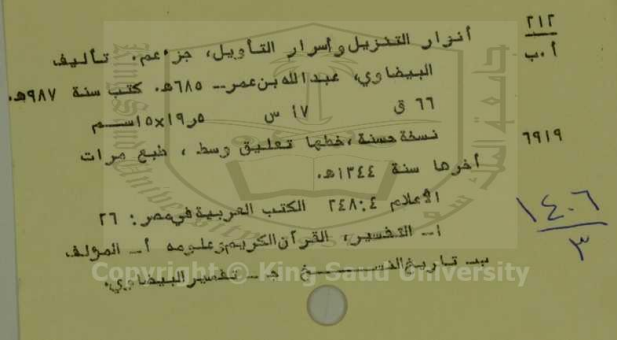 ٢١٢
أ.ب
أنوار التنزيل وأسرار التأويل، جزء عم. تأليف
البيضاوي، عبدالله بن عمر -- ٦٨٥هـ. كتب سنة ٩٨٧هـ.
٦٦ ق ١٧ س ١٩٫٥×١٥سم
٦٩١٩
نسخة حسنة، خطها تعليق وسط، طبع مرات
أخرها سنة ١٣٤٤هـ.
الأعلام ٤:٢٤٨ الكتب العربية في مصر: ٢٦
١- التفسير، القرآن الكريم وعلومه أ- المؤلف
ب- تاريخ النسخ ج- تفسير البيضاوي.
١٤٠٦
٣
Copyright © King Saud University
جامعة الملك سعود
King Saud University